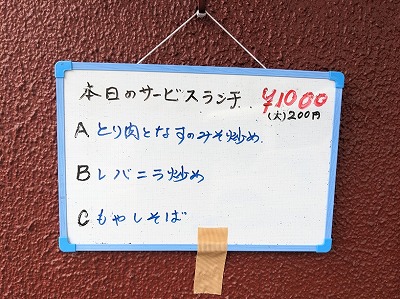 本日のサービスランチ ¥1000
(大)200円
A とり肉となすのみそ炒め
B レバニラ炒め
C もやしそば